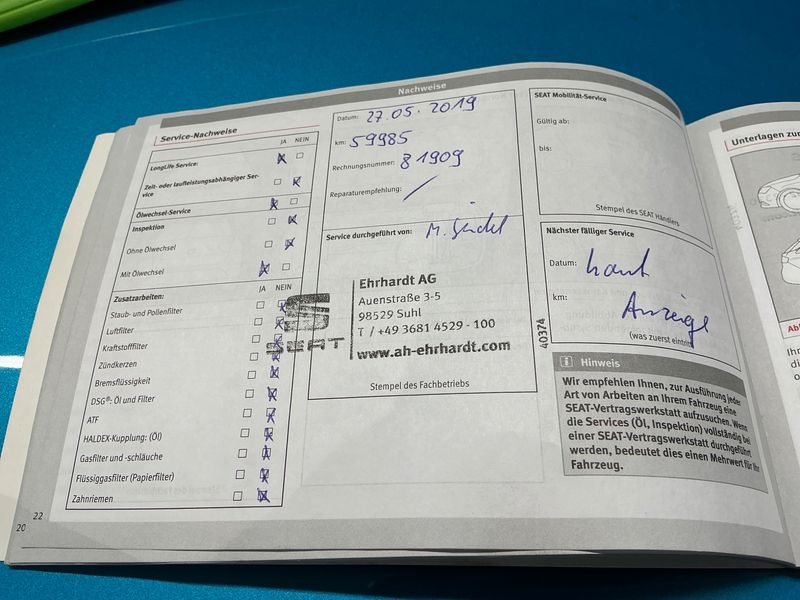 Nachweise
Service-Nachweise
JA NEIN
LongLife Service:
Zeit- oder laufleistungsabhängiger Ser-
vice
Ölwechsel-Service
Inspektion
Ohne Ölwechsel
Mit Ölwechsel
JA NEIN
Zusatzarbeiten:
Staub- und Pollenfilter
Luftfilter
Kraftstofffilter
Zündkerzen
Bremsflüssigkeit
DSG®: Öl und Filter
ATF
HALDEX-Kupplung: (Öl)
Gasfilter und -schläuche
Flüssiggasfilter (Papierfilter)
Zahnriemen
22
20
Datum: 27.05.2019
km: 59985
Rechnungsnummer: 81909
Reparaturempfehlung: /
Service durchgeführt von: M.
SEAT
Ehrhardt AG
Auenstraße 3-5
98529 Suhl
T / +49 3681 4529 - 100
www.ah-ehrhardt.com
Stempel des Fachbetriebs
40374
SEAT Mobilität-Service
Gültig ab:
bis:
Stempel des SEAT Händlers
Nächster fälliger Service
Datum: laut
km: Anzeige
(was zuerst eintritt)
i Hinweis
Wir empfehlen Ihnen, zur Ausführung jeder
Art von Arbeiten an Ihrem Fahrzeug eine
SEAT-Vertragswerkstatt aufzusuchen. Wenn
die Services (Öl, Inspektion) vollständig bei
einer SEAT-Vertragswerkstatt durchgeführt
werden, bedeutet dies einen Mehrwert für Ihr
Fahrzeug.
Unterlagen zu